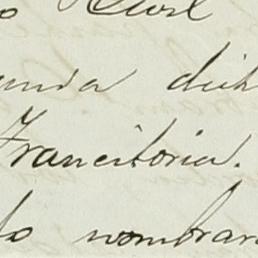 o Civil
unda dich
Trancitoria.
to nombrar